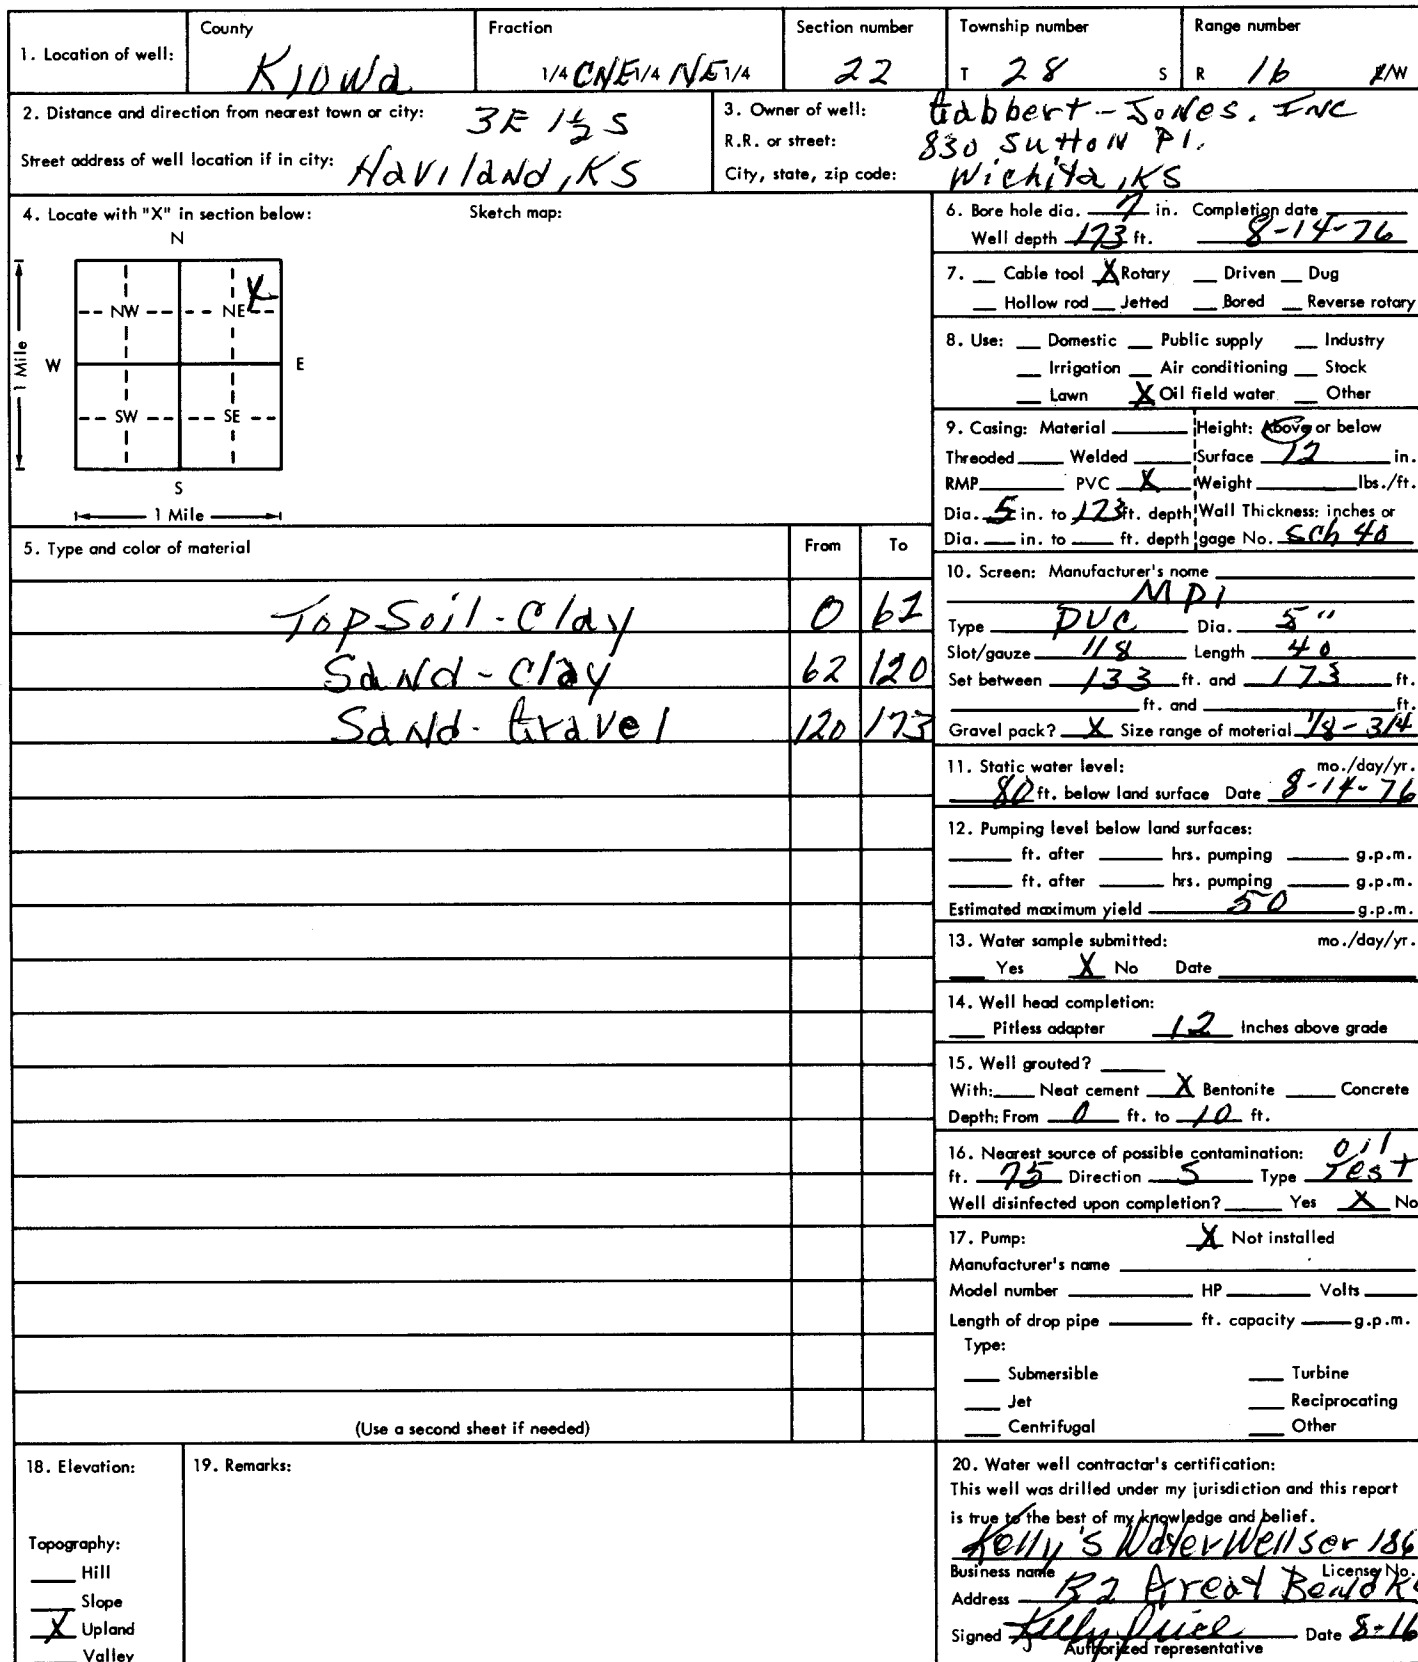 County Fraction Section number Township number Range number
1. Location of well: Kiowa 1/4 CNE 1/4 NE 1/4 22 T 28 S R 16 E/W
2. Distance and direction from nearest town or city: 3E 1½ S
Street address of well location if in city: Haviland, KS
3. Owner of well: Gabbert-Jones, INC
R.R. or street: 830 Sutton Pl.
City, state, zip code: Wichita, KS
4. Locate with "X" in section below: Sketch map:
N
NW NE X
1 Mile W E
SW SE
S
1 Mile
5. Type and color of material From To
Top Soil - Clay 0 62
Sand - Clay 62 120
Sand - Gravel 120 173
(Use a second sheet if needed)
6. Bore hole dia. 7 in. Completion date
Well depth 173 ft. 8-14-76
7. __ Cable tool X Rotary __ Driven __ Dug
__ Hollow rod __ Jetted __ Bored __ Reverse rotary
8. Use: __ Domestic __ Public supply __ Industry
__ Irrigation __ Air conditioning __ Stock
__ Lawn X Oil field water __ Other
9. Casing: Material ____ Height: Above or below
Threaded ____ Welded ____ Surface 12 in.
RMP ____ PVC X Weight ____ lbs./ft.
Dia. 5 in. to 173 ft. depth Wall Thickness: inches or
Dia. __ in. to __ ft. depth gage No. Sch 40
10. Screen: Manufacturer's name
MPI
Type PVC Dia. 5"
Slot/gauze 1/8 Length 40
Set between 133 ft. and 173 ft.
____ ft. and ____ ft.
Gravel pack? X Size range of material 1/8 - 3/4
11. Static water level: mo./day/yr.
80 ft. below land surface Date 8-14-76
12. Pumping level below land surfaces:
____ ft. after ____ hrs. pumping ____ g.p.m.
____ ft. after ____ hrs. pumping ____ g.p.m.
Estimated maximum yield 50 g.p.m.
13. Water sample submitted: mo./day/yr.
__ Yes X No Date ____
14. Well head completion:
__ Pitless adapter 12 Inches above grade
15. Well grouted? ____
With: __ Neat cement X Bentonite __ Concrete
Depth: From 0 ft. to 10 ft.
16. Nearest source of possible contamination: Oil
ft. 75 Direction S Type Test
Well disinfected upon completion? ____ Yes X No
17. Pump: X Not installed
Manufacturer's name ____
Model number ____ HP ____ Volts ____
Length of drop pipe ____ ft. capacity ____ g.p.m.
Type:
__ Submersible __ Turbine
__ Jet __ Reciprocating
__ Centrifugal __ Other
18. Elevation:
Topography:
__ Hill
__ Slope
X Upland
__ Valley
19. Remarks:
20. Water well contractor's certification:
This well was drilled under my jurisdiction and this report
is true to the best of my knowledge and belief.
Kelly's Water Well Ser 186
Business name License No.
Address R2 Great Bend KS
Signed Kelly Price Date 8-16
Authorized representative